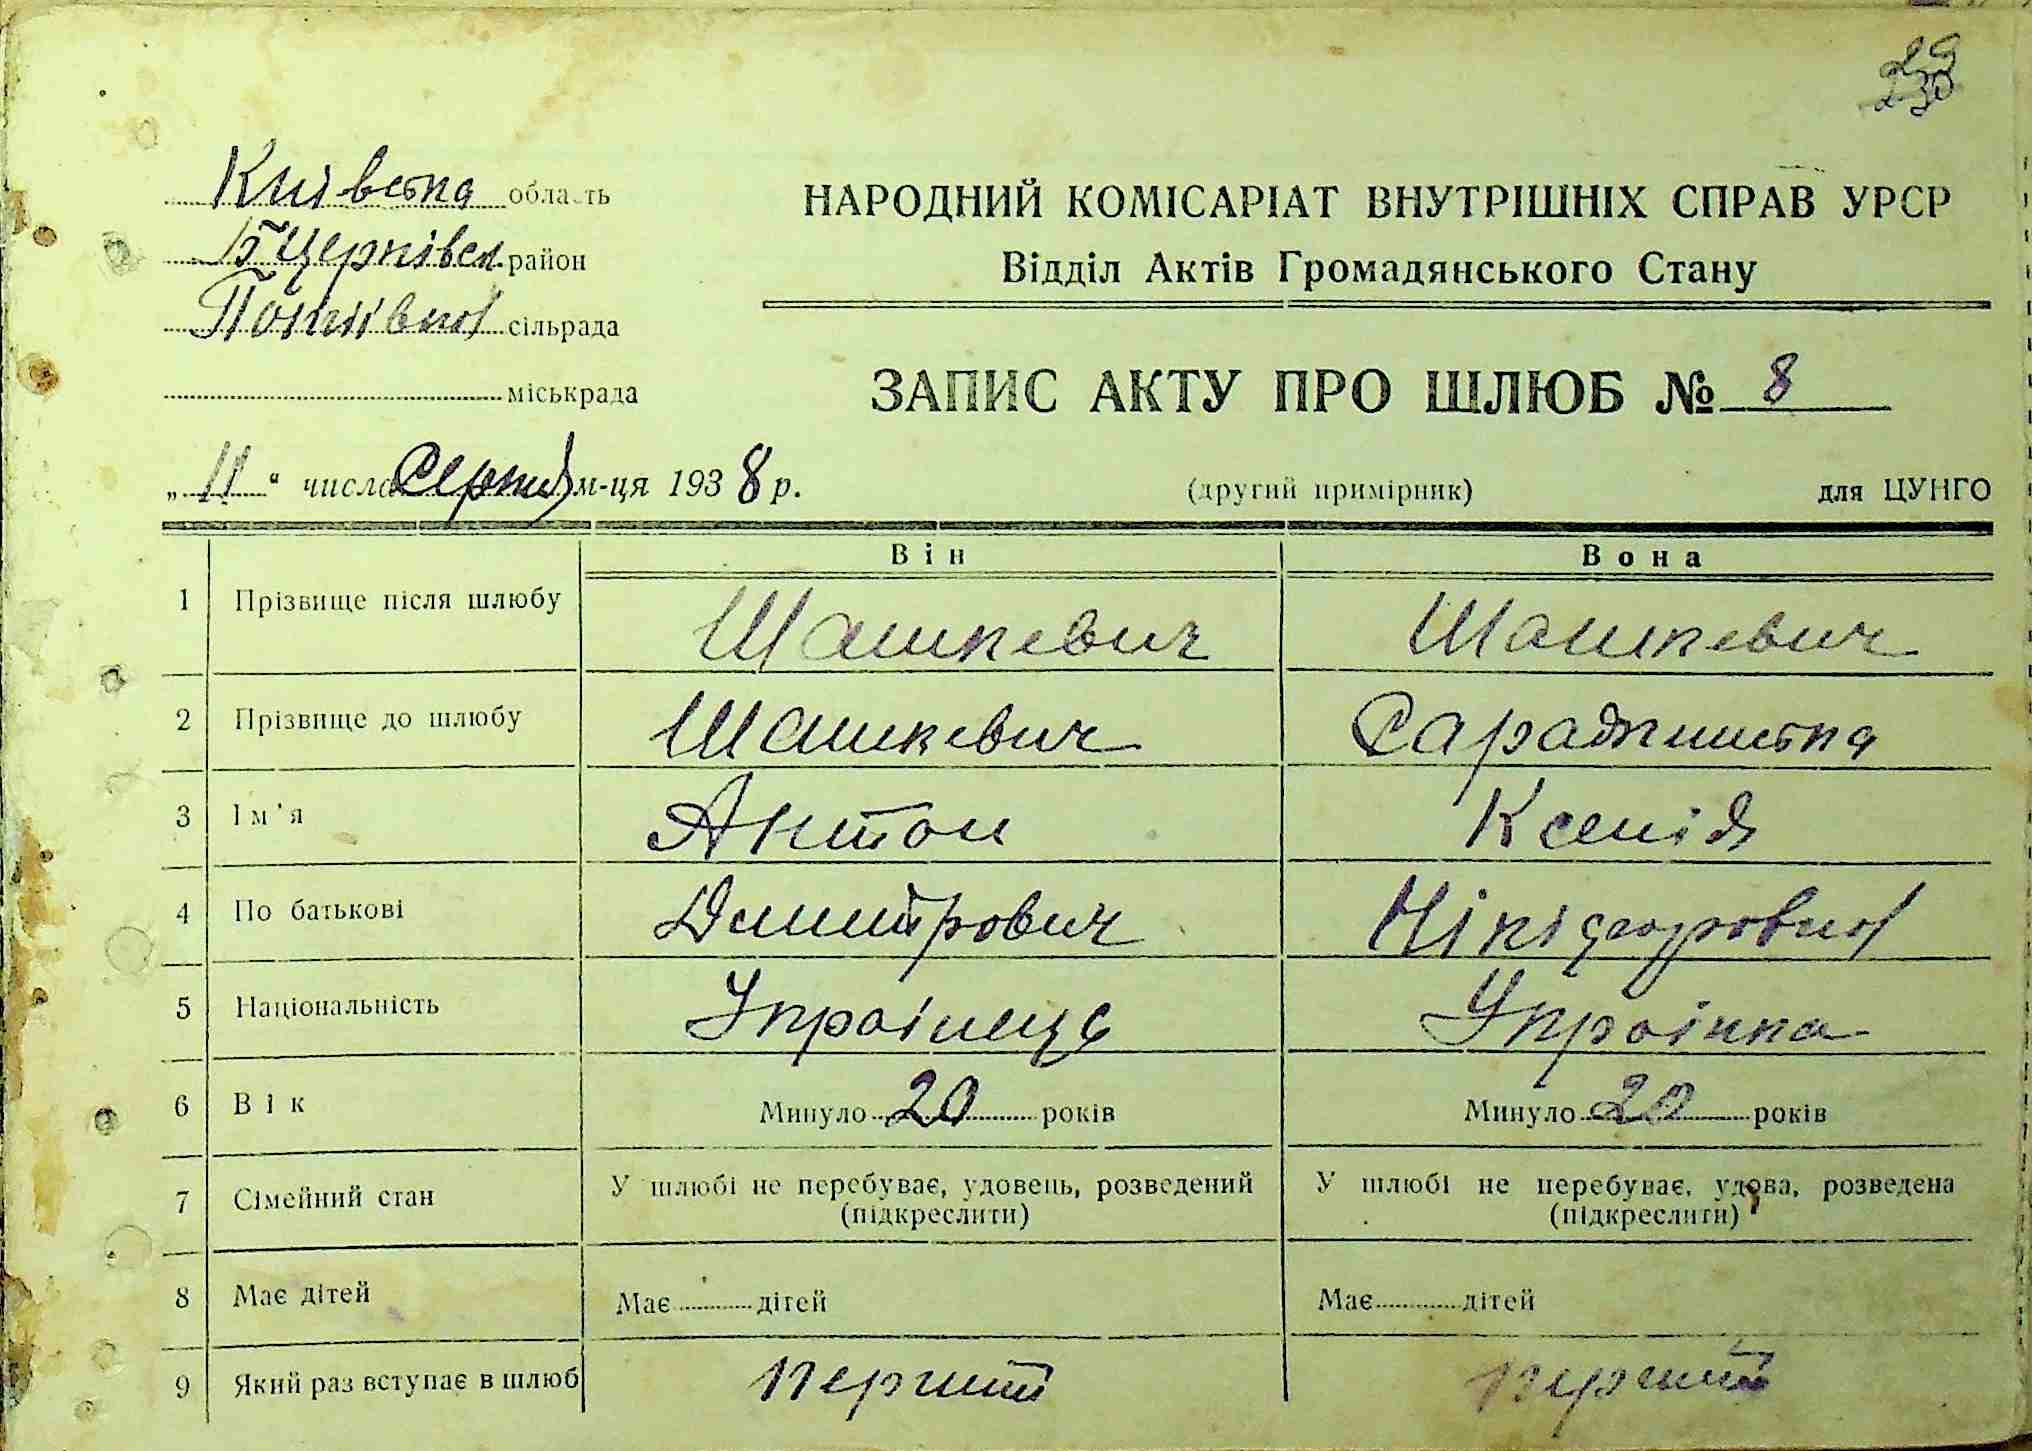 29
230
Київська область
Б Церківськ. район
сільрада
міськрада
НАРОДНИЙ КОМІСАРІАТ ВНУТРІШНІХ СПРАВ УРСР
Відділ Актів Громадянського Стану
ЗАПИС АКТУ ПРО ШЛЮБ № 8
„ 11 “ числа Серпня м-ця 1938 р.
(другий примірник)
для ЦУНГО
Він Вона
1 Прізвище після шлюбу Шашкевич Шашкевич
2 Прізвище до шлюбу Шашкевич
3 Ім'я Антон Ксенія
4 По батькові Дмитрович Нікіфоровна
5 Національність Українець Українка
6 Вік Минуло 20 років Минуло 20 років
7 Сімейний стан У шлюбі не перебуває, удовець, розведений У шлюбі не перебуває, удова, розведена
(підкреслити) (підкреслити)
8 Має дітей Має дітей Має дітей
9 Який раз вступає в шлюб перший перший